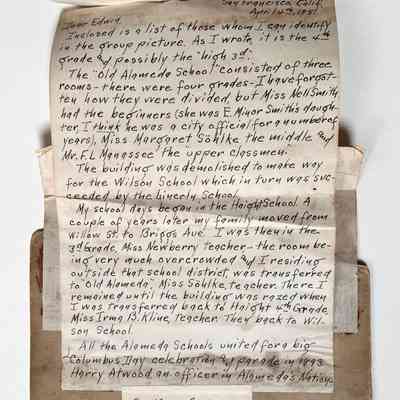 San Francisco, Calif.
April 4th, 1951.
Dear Edwin,
Inclosed is a list of those whom I can identify
in the group picture. As I wrote, it is the 4th
grade & possibly the "high 3d."
The "Old Alameda School" consisted of three
rooms - there were four grades - I have forgot-
ten how they were divided, but Miss Nell Smith
had the beginners (she was E. Minor Smith's daugh-
ter, I think he was a city official for a number of
years), Miss Margaret Söhlke the middle and
Mr. F. L. Manassee the upper classmen.
The building was demolished to make way
for the Wilson School which in turn was suc-
ceeded by the Lincoln School.
My school days began in the Haight School. A
couple of years later my family moved from
Willow St. to Briggs Ave. I was then in the
3d Grade, Miss Newberry teacher - the room be-
ing very much overcrowded & I residing
outside that school district, was transferred
to "Old Alameda", Miss Söhlke, teacher. There I
remained until the building was razed when
I was transferred back to Haight 4th Grade
Miss Irma B. Kline, teacher. They back to Wil-
son School.
All the Alameda Schools united for a big
Columbus Day celebration & parade in 1893
Harry Atwood an officer in Alameda's Nation-